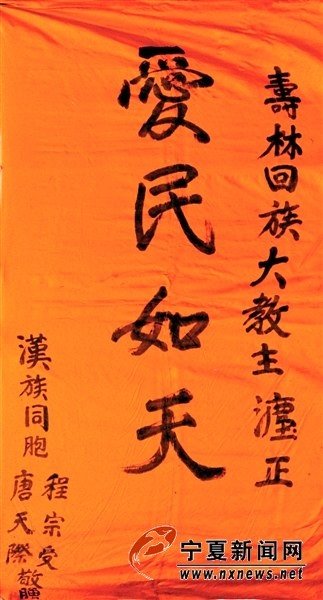 壽林回族大教主 正
愛民如天
漢族同胞
程宗受
唐天際敬贈
宁夏新闻网
www.nxnews.net